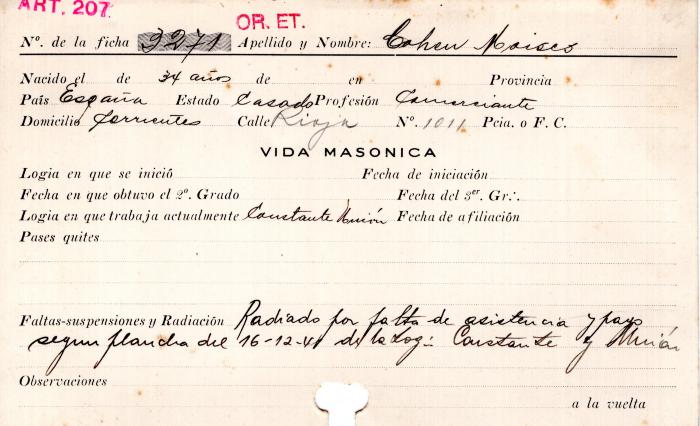 ART. 207
OR. ET.
Nº. de la ficha 3271 Apellido y Nombre: Cohen Moises
Nacido el de 34 años de en Provincia
País España Estado Casado Profesión Comerciante
Domicilio Corrientes Calle Rioja Nº. 1011 Pcia. o F. C.
VIDA MASONICA
Logia en que se inició Fecha de iniciación
Fecha en que obtuvo el 2º. Grado Fecha del 3er. Gr∴.
Logia en que trabaja actualmente Constante Unión Fecha de afiliación
Pases quites
Faltas-suspensiones y Radiación Radiado por falta de asistencia y pago
segun plancha del 16-12-41 de la Log∴ Constante y Unión
Observaciones
a la vuelta